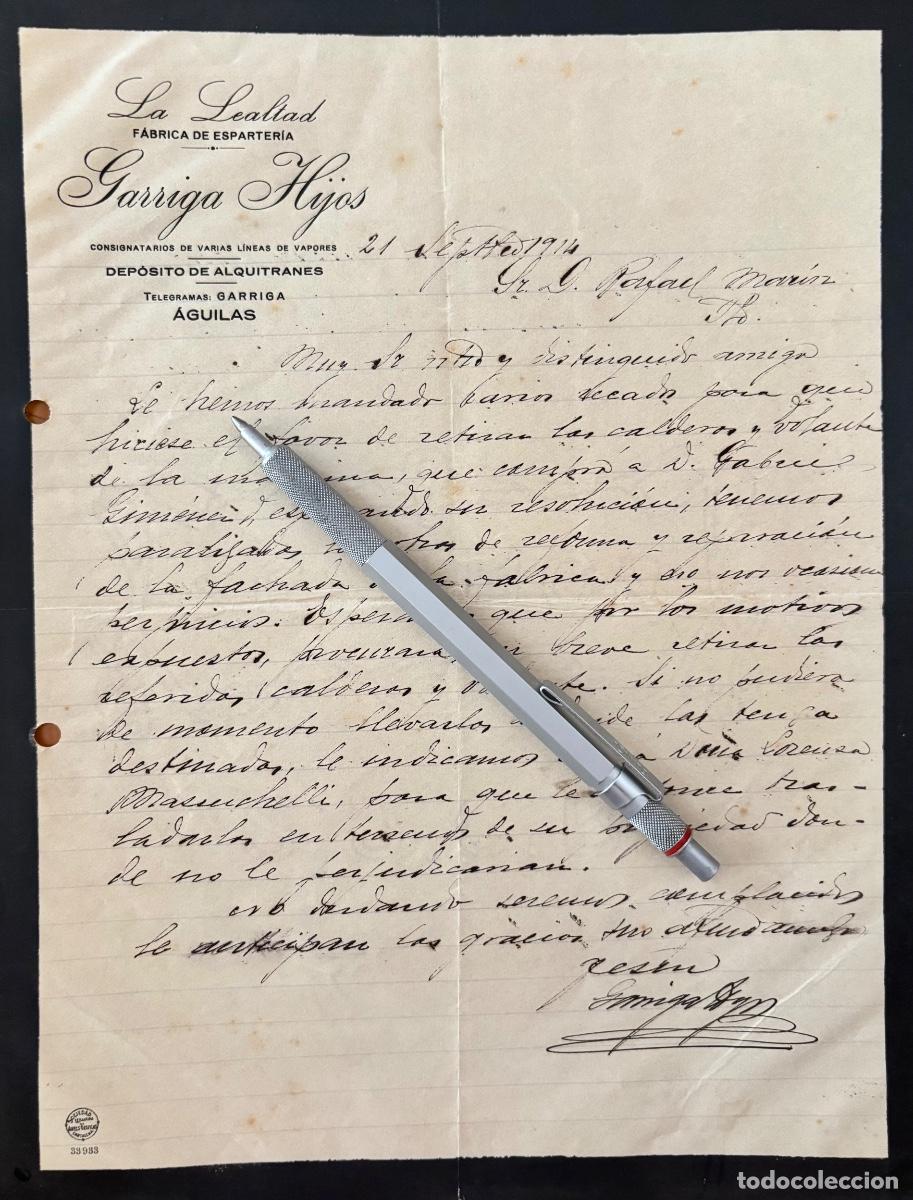 La Lealtad
FÁBRICA DE ESPARTERÍA
Garriga Hijos
CONSIGNATARIOS DE VARIAS LÍNEAS DE VAPORES
DEPÓSITO DE ALQUITRANES
TELEGRAMAS: GARRIGA
ÁGUILAS
21 Septbre 1914
Sr. D. Rafael Marín
Muy Sr ntro y distinguido amigo
Le hemos mandado barios recados para que
hiciese el favor de retirar las calderas y volante
de la que compró a D. Gabriel
Giménez, su resolución, tenemos
paralizados de reforma y reparación
de la fachada la fábrica y eso nos ocasiona
perjuicios. que por los motivos
expuestos, procurará breve retirar las
referidas calderas y Si no pudiera
de momento llevarlos las tenga
destinadas, le indicamos Doña Lorensa
Massuchelli, para que le tras-
ladarlas en terrenos de su don-
de no le perjudicarian.
No dudando seremos complacidos
le anticipan las gracias sus
Garriga Hijos
SOCIEDAD
CARTAGENA
33933
todocoleccion